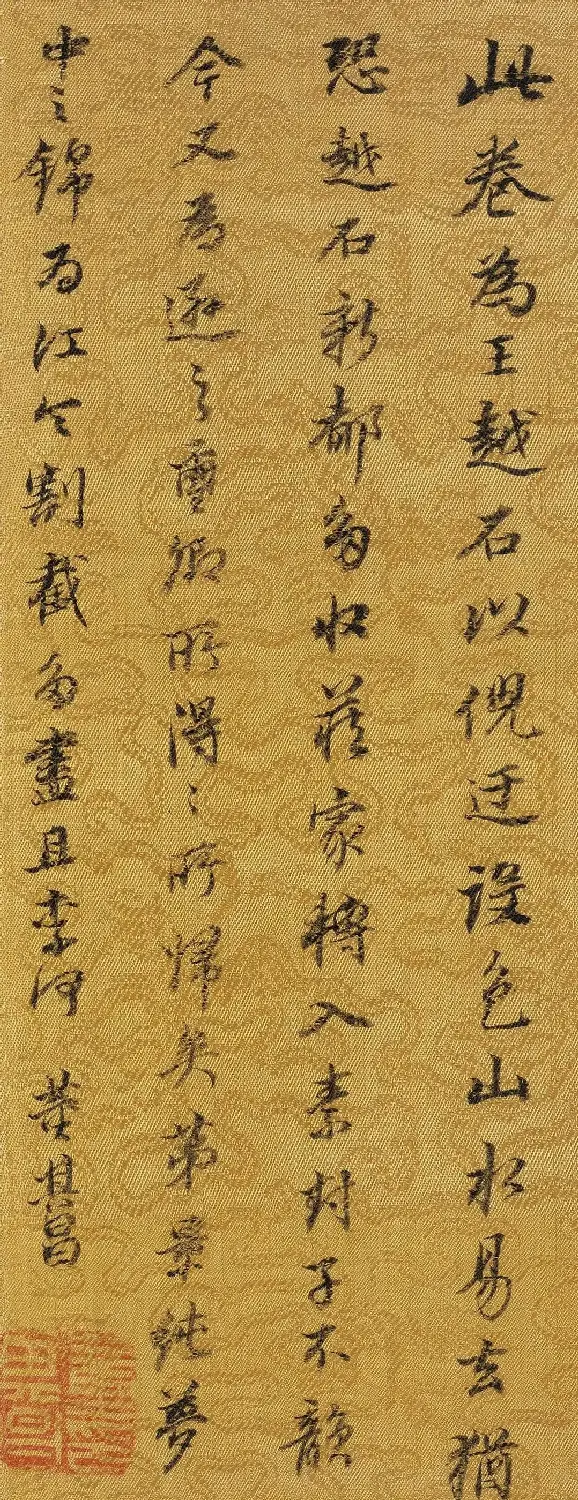 此卷為王越石以倪迂设色山水易去猶
恐越石新都多收藏家轉入素封子不韻
今又為遜之璽卿所得得所歸矣第景純夢
中之錦為江令割截多盡且奈何 董其昌